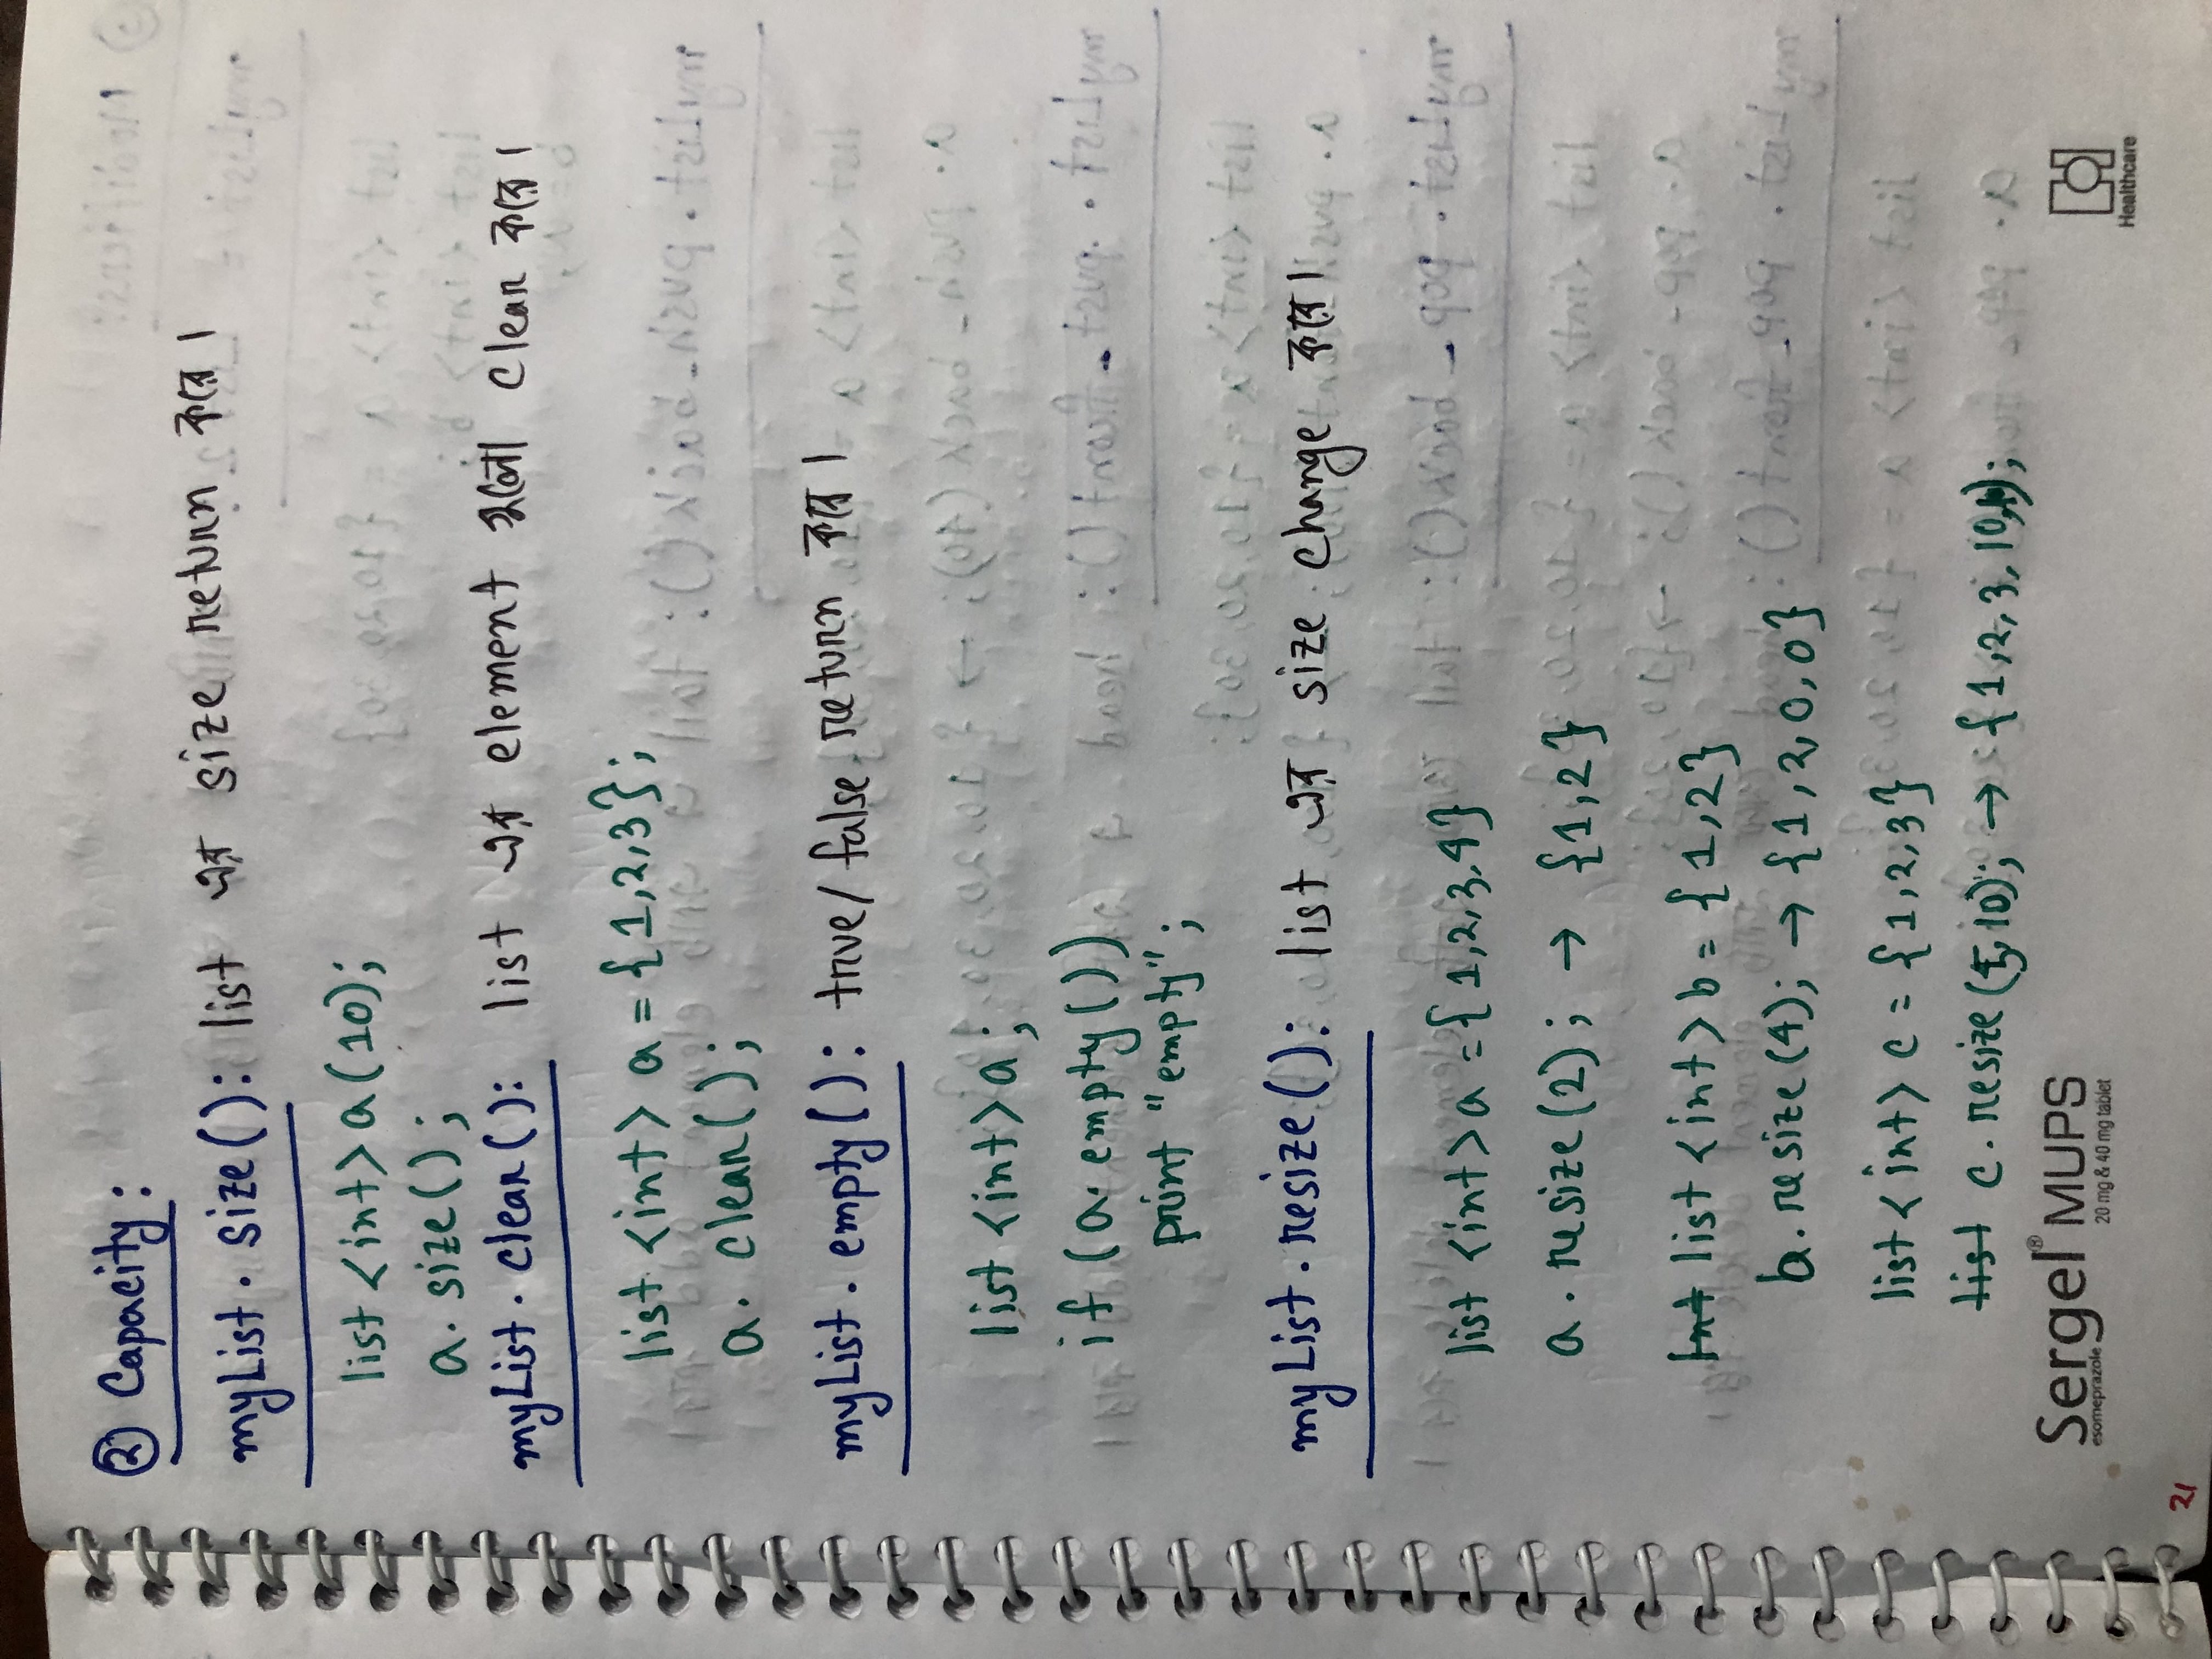 ② Capacity:
myList. size(): list এর size return করে।
list <int> a(10);
a. size();
myList. clear(): list এর element গুলো clear করে।
list <int> a = {1,2,3};
a. clear();
myList. empty(): true/false return করে।
list <int> a;
if (a. empty())
print "empty";
myList. resize(): list এর size change করে।
list <int> a = {1,2,3,4}
a. resize(2); → {1,2}
Int list <int> b = {1,2}
b. resize(4); → {1,2,0,0}
list <int> c = {1,2,3}
list c. resize(5,10); → {1,2,3,10,10};
Sergel® MUPS
esomeprazole 20 mg & 40 mg tablet
Healthcare
21